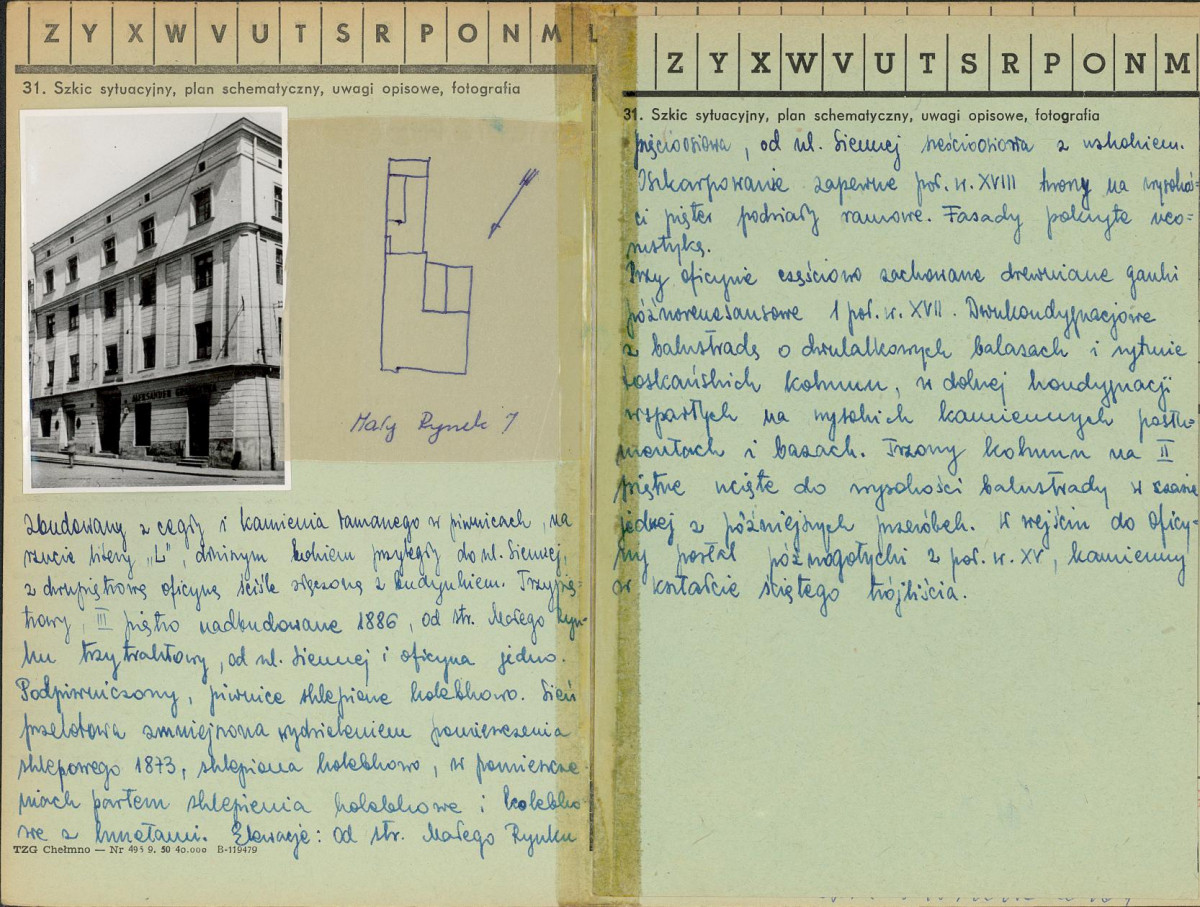 Z Y X W V U T S R P O N M L
31. Szkic sytuacyjny, plan schematyczny, uwagi opisowe, fotografia
ALEKSANDER
Mały Rynek 7
Zbudowany z cegły i kamienia łamanego w piwnicach, na
rzucie litery „L", dłuższym bokiem przyległy do ul. Siennej,
z dwupiętrową oficyną ściśle złączoną z budynkiem. Trzypię-
trowy, III piętro nadbudowane 1886, od str. Małego Ryn-
ku trzytraktowy, od ul. Siennej i oficyna jedno.
Podpiwniczony, piwnice sklepione kolebkowo. Sień
przelotowa zmniejszona wydzieleniem pomieszczenia
sklepowego 1873, sklepiona kolebkowo, w pomieszcze-
niach parteru sklepienia kolebkowe i kolebko-
we z lunetami. Elewacje: od str. Małego Rynku
TZG Chełmno — Nr 493 9. 50 40.000 B-119479
Z Y X W V U T S R P O N M
31. Szkic sytuacyjny, plan schematyczny, uwagi opisowe, fotografia
pięcioosiowa, od ul. Siennej sześcioosiowa z uskokiem.
Oszkarpowanie zapewne poł. w. XVIII tworzy na wysokoś-
ci pięter podziały ramowe. Fasady pokryte neo-
rustyką.
Przy oficynie częściowo zachowane drewniane ganki
późnorenesansowe 1 poł. w. XVII. Dwukondygnacjowe
z balustradą o dwulalkowych balasach i rytmie
toskańskich kolumn, w dolnej kondygnacji
wspartych na wysokich kamiennych postu-
mentach i bazach. Trzony kolumn na II
piętrze ucięte do wysokości balustrady w czasie
jednej z późniejszych przeróbek. W wejściu do oficy-
ny portal późnogotycki 2 poł. w. XV, kamienny
w kształcie ściętego trójliścia.